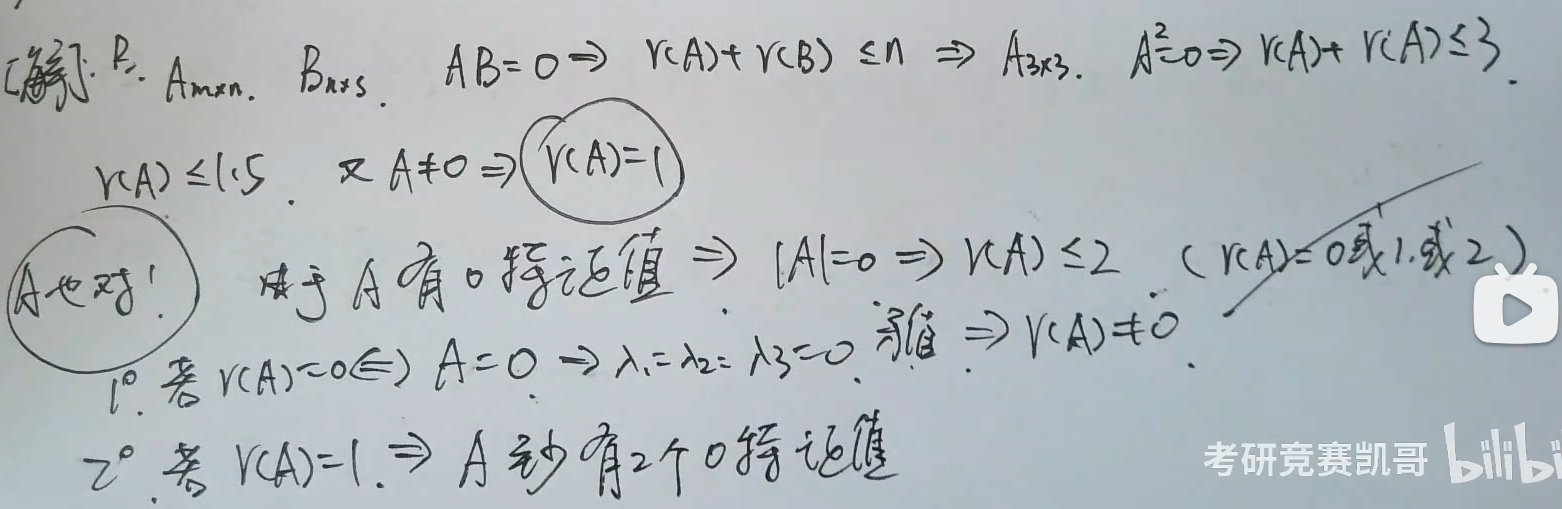 [解]: B. A_{m×n}. B_{n×s}. AB=0 ⇒ r(A)+r(B)≤n ⇒ A_{3×3}. A²=0 ⇒ r(A)+r(A)≤3.
r(A)≤1.5. 又A≠0 ⇒ r(A)=1
A也对! 由于A有0特征值 ⇒ |A|=0 ⇒ r(A)≤2. (r(A)=0或1.或2)
1°. 若r(A)=0 ⇔ A=0. → λ₁=λ₂=λ₃=0. 矛盾. ⇒ r(A)≠0.
2°. 若r(A)=1. ⇒ A至少有2个0特征值
考研竞赛凯哥 bilibi